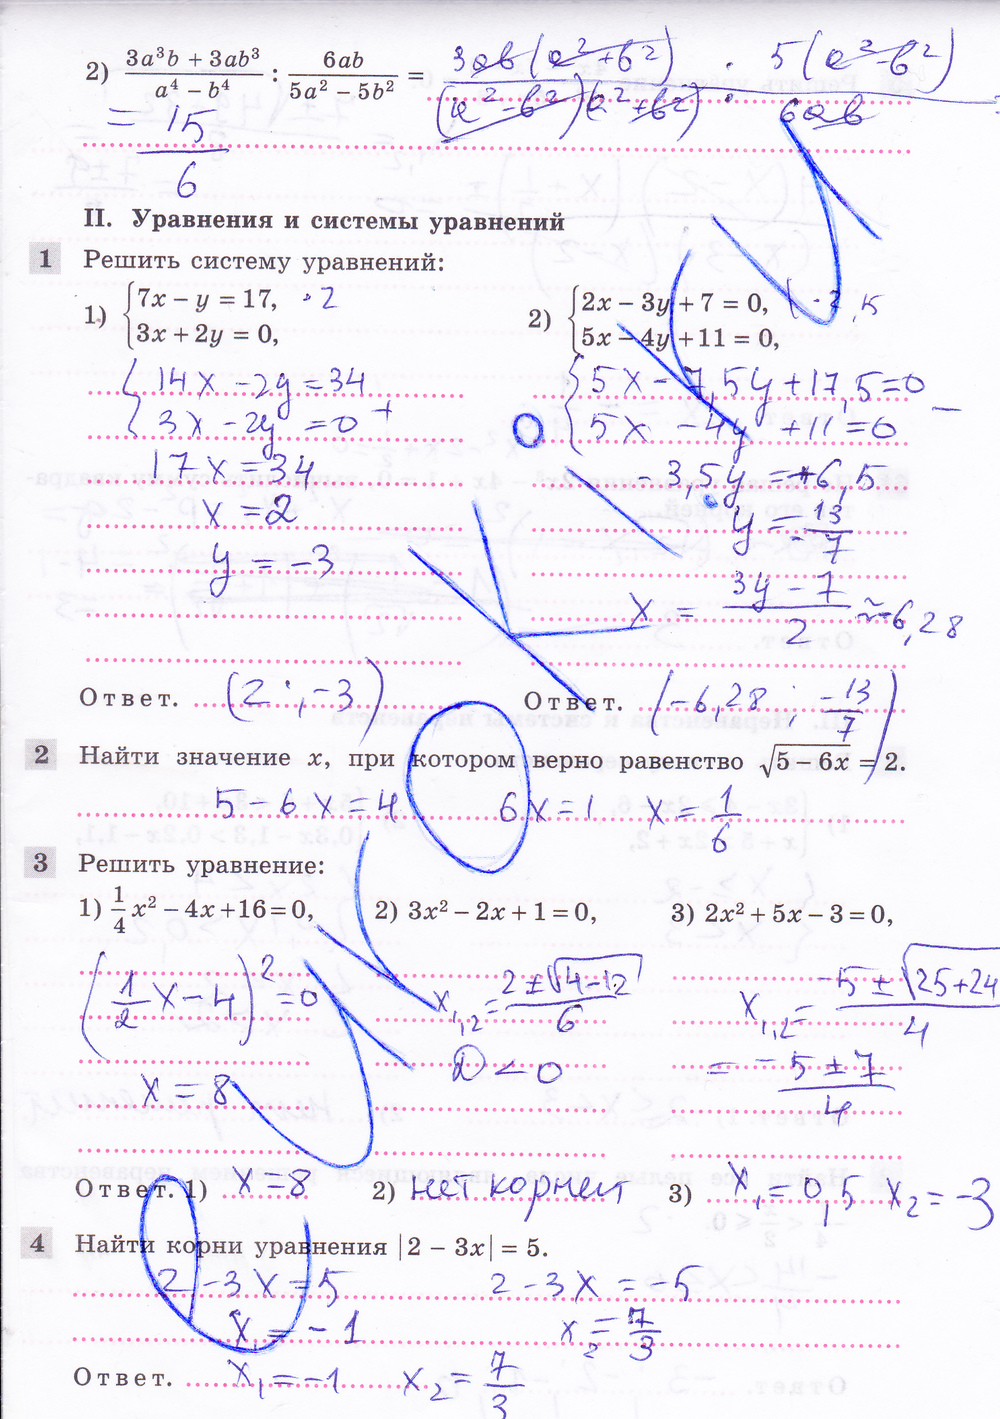 2) (3a³b + 3ab³)/(a⁴ − b⁴) : 6ab/(5a² − 5b²) = 3ab(a²+b²)/((a²−b²)(a²+b²)) · 5(a²−b²)/6ab
= 15/6
II. Уравнения и системы уравнений
1 Решить систему уравнений:
1) {7x − y = 17, ·2
3x + 2y = 0,
2) {2x − 3y + 7 = 0, | · 2,5
5x − 4y + 11 = 0,
{14x − 2y = 34
3x − 2y = 0 +
17x = 34
x = 2
y = −3
{5x − 7,5y + 17,5 = 0
5x − 4y + 11 = 0 −
− 3,5y = +6,5
y = −13/7
x = (3y − 7)/2 ≈ −6,28
Ответ. (2 ; −3)
Ответ. (−6,28 ; −13/7)
2 Найти значение x, при котором верно равенство √(5 − 6x) = 2.
5 − 6x = 4 6x = 1 x = 1/6
3 Решить уравнение:
1) 1/4 x² − 4x + 16 = 0, 2) 3x² − 2x + 1 = 0, 3) 2x² + 5x − 3 = 0,
(1/2 x − 4)² = 0
x = 8
x₁,₂ = (2 ± √(4−12))/6
D < 0
x₁,₂ = (−5 ± √(25+24))/4
= (−5 ± 7)/4
Ответ. 1) x = 8 2) нет корней 3) x₁ = 0,5 x₂ = −3
4 Найти корни уравнения |2 − 3x| = 5.
2 − 3x = 5 2 − 3x = −5
x₁ = −1 x₂ = 7/3
Ответ. x₁ = −1 x₂ = 7/3